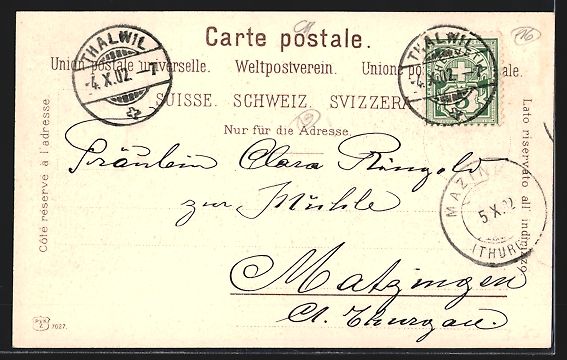 Carte postale.
Union postale universelle. Weltpostverein. Unione postale
SUISSE. SCHWEIZ. SVIZZERA
Nur für die Adresse.
Côté réservé à l'adresse
Lato riservato all' indirizzo
THALWIL
-4.X.02.-7
THALWIL
-4.X.02.
5
MAZIN
5 X.02
(THURG
Fräulein Clara Ringold
zur Mühle
Matzingen
Ct. Thurgau.
7627.